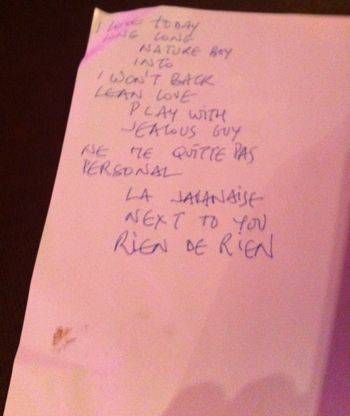 I LOVE TODAY
LONG LONG
NATURE BOY
INTO
I WON'T BACK
LEAN LOVE
PLAY WITH
JEALOUS GUY
NE ME QUITTE PAS
PERSONAL
LA JAVANAISE
NEXT TO YOU
RIEN DE RIEN